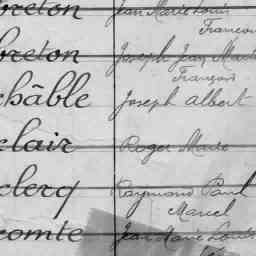 breton Jean Marie Louis
François
breton Joseph Jean Marie
François
châble Joseph Albert
clair Roger Marie
clerq Raymond Paul
Marcel
comte Jean Marie Louis